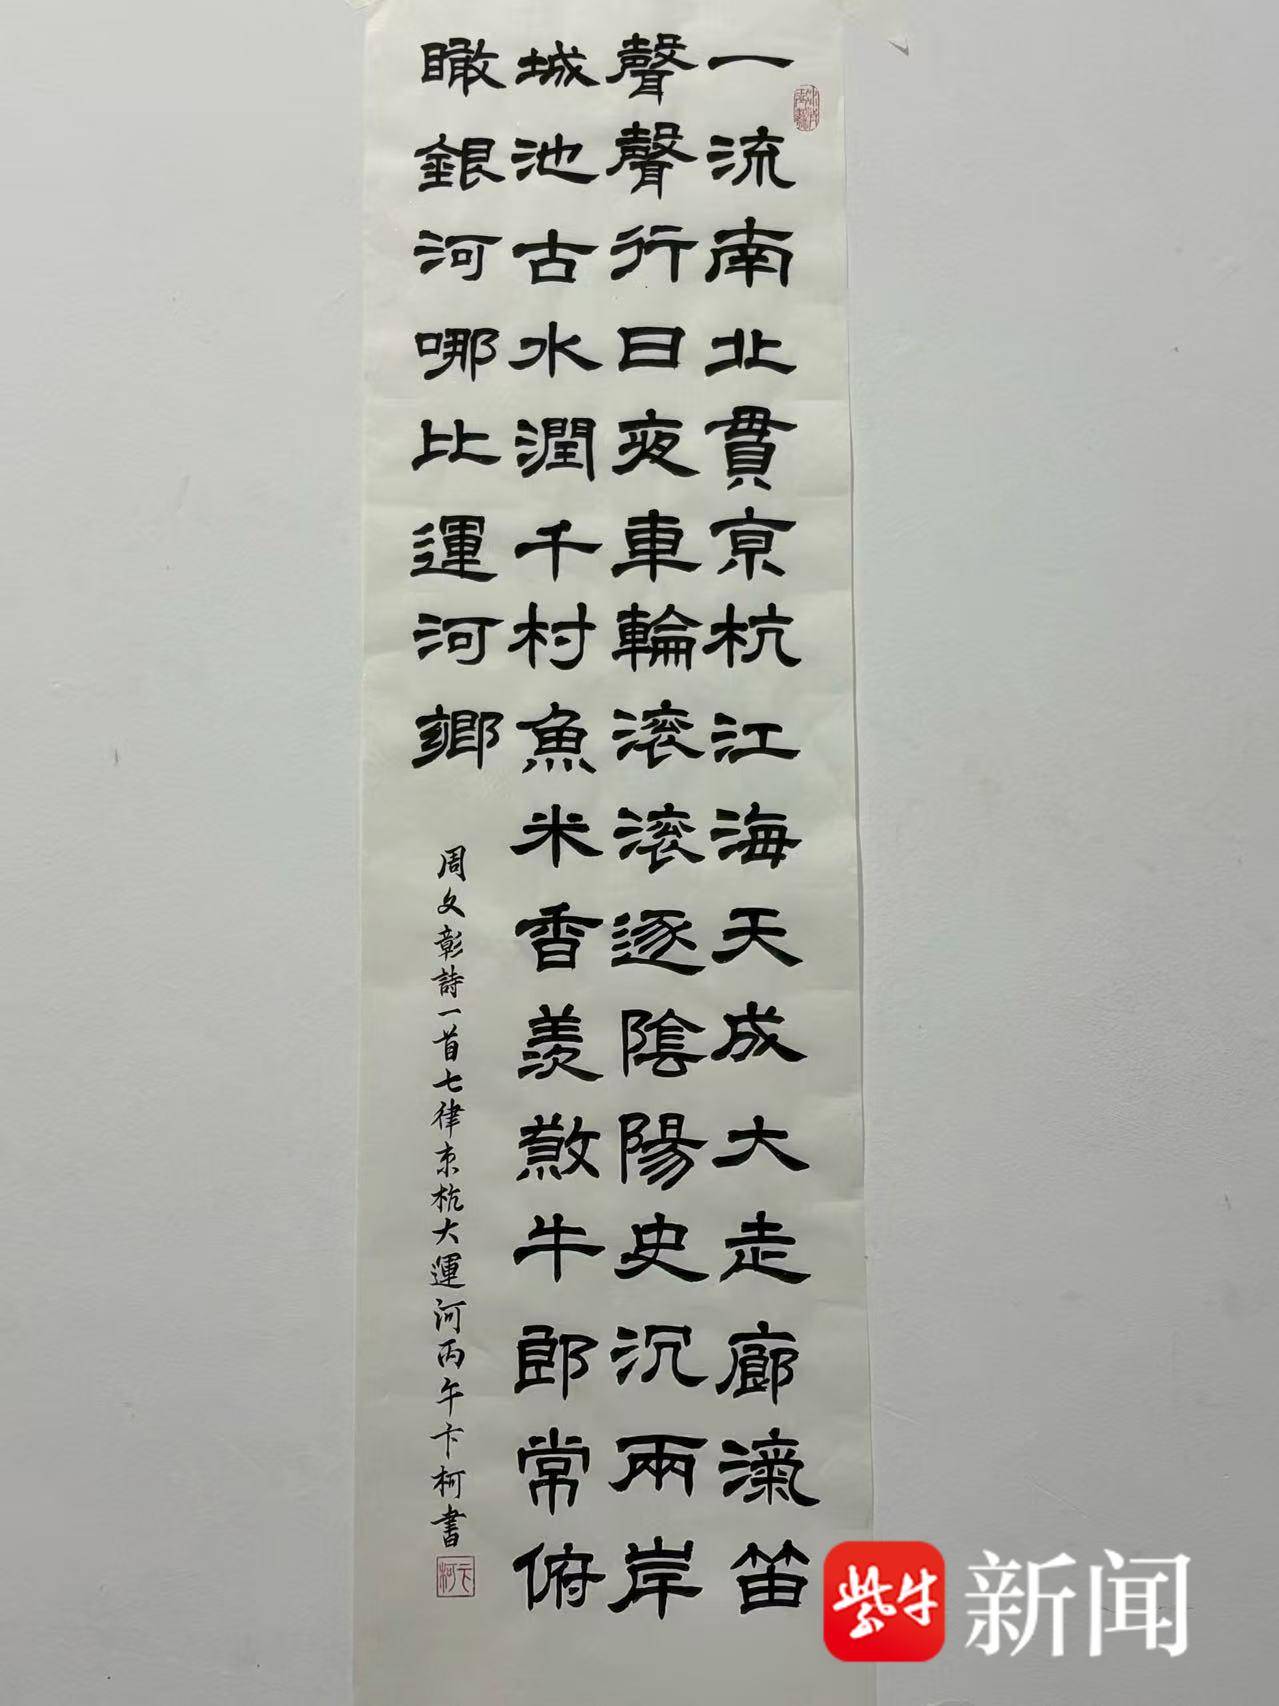 一流南北貫京杭江海天成大走廊滊笛
聲聲行日夜車輪滚滚逐陰陽史沉兩岸
城池古水潤千村魚米香羡煞牛郎常俯
瞰銀河哪比運河鄉
周文彰詩一首七律京杭大運河丙午卞柯書
卞柯
紫牛新闻